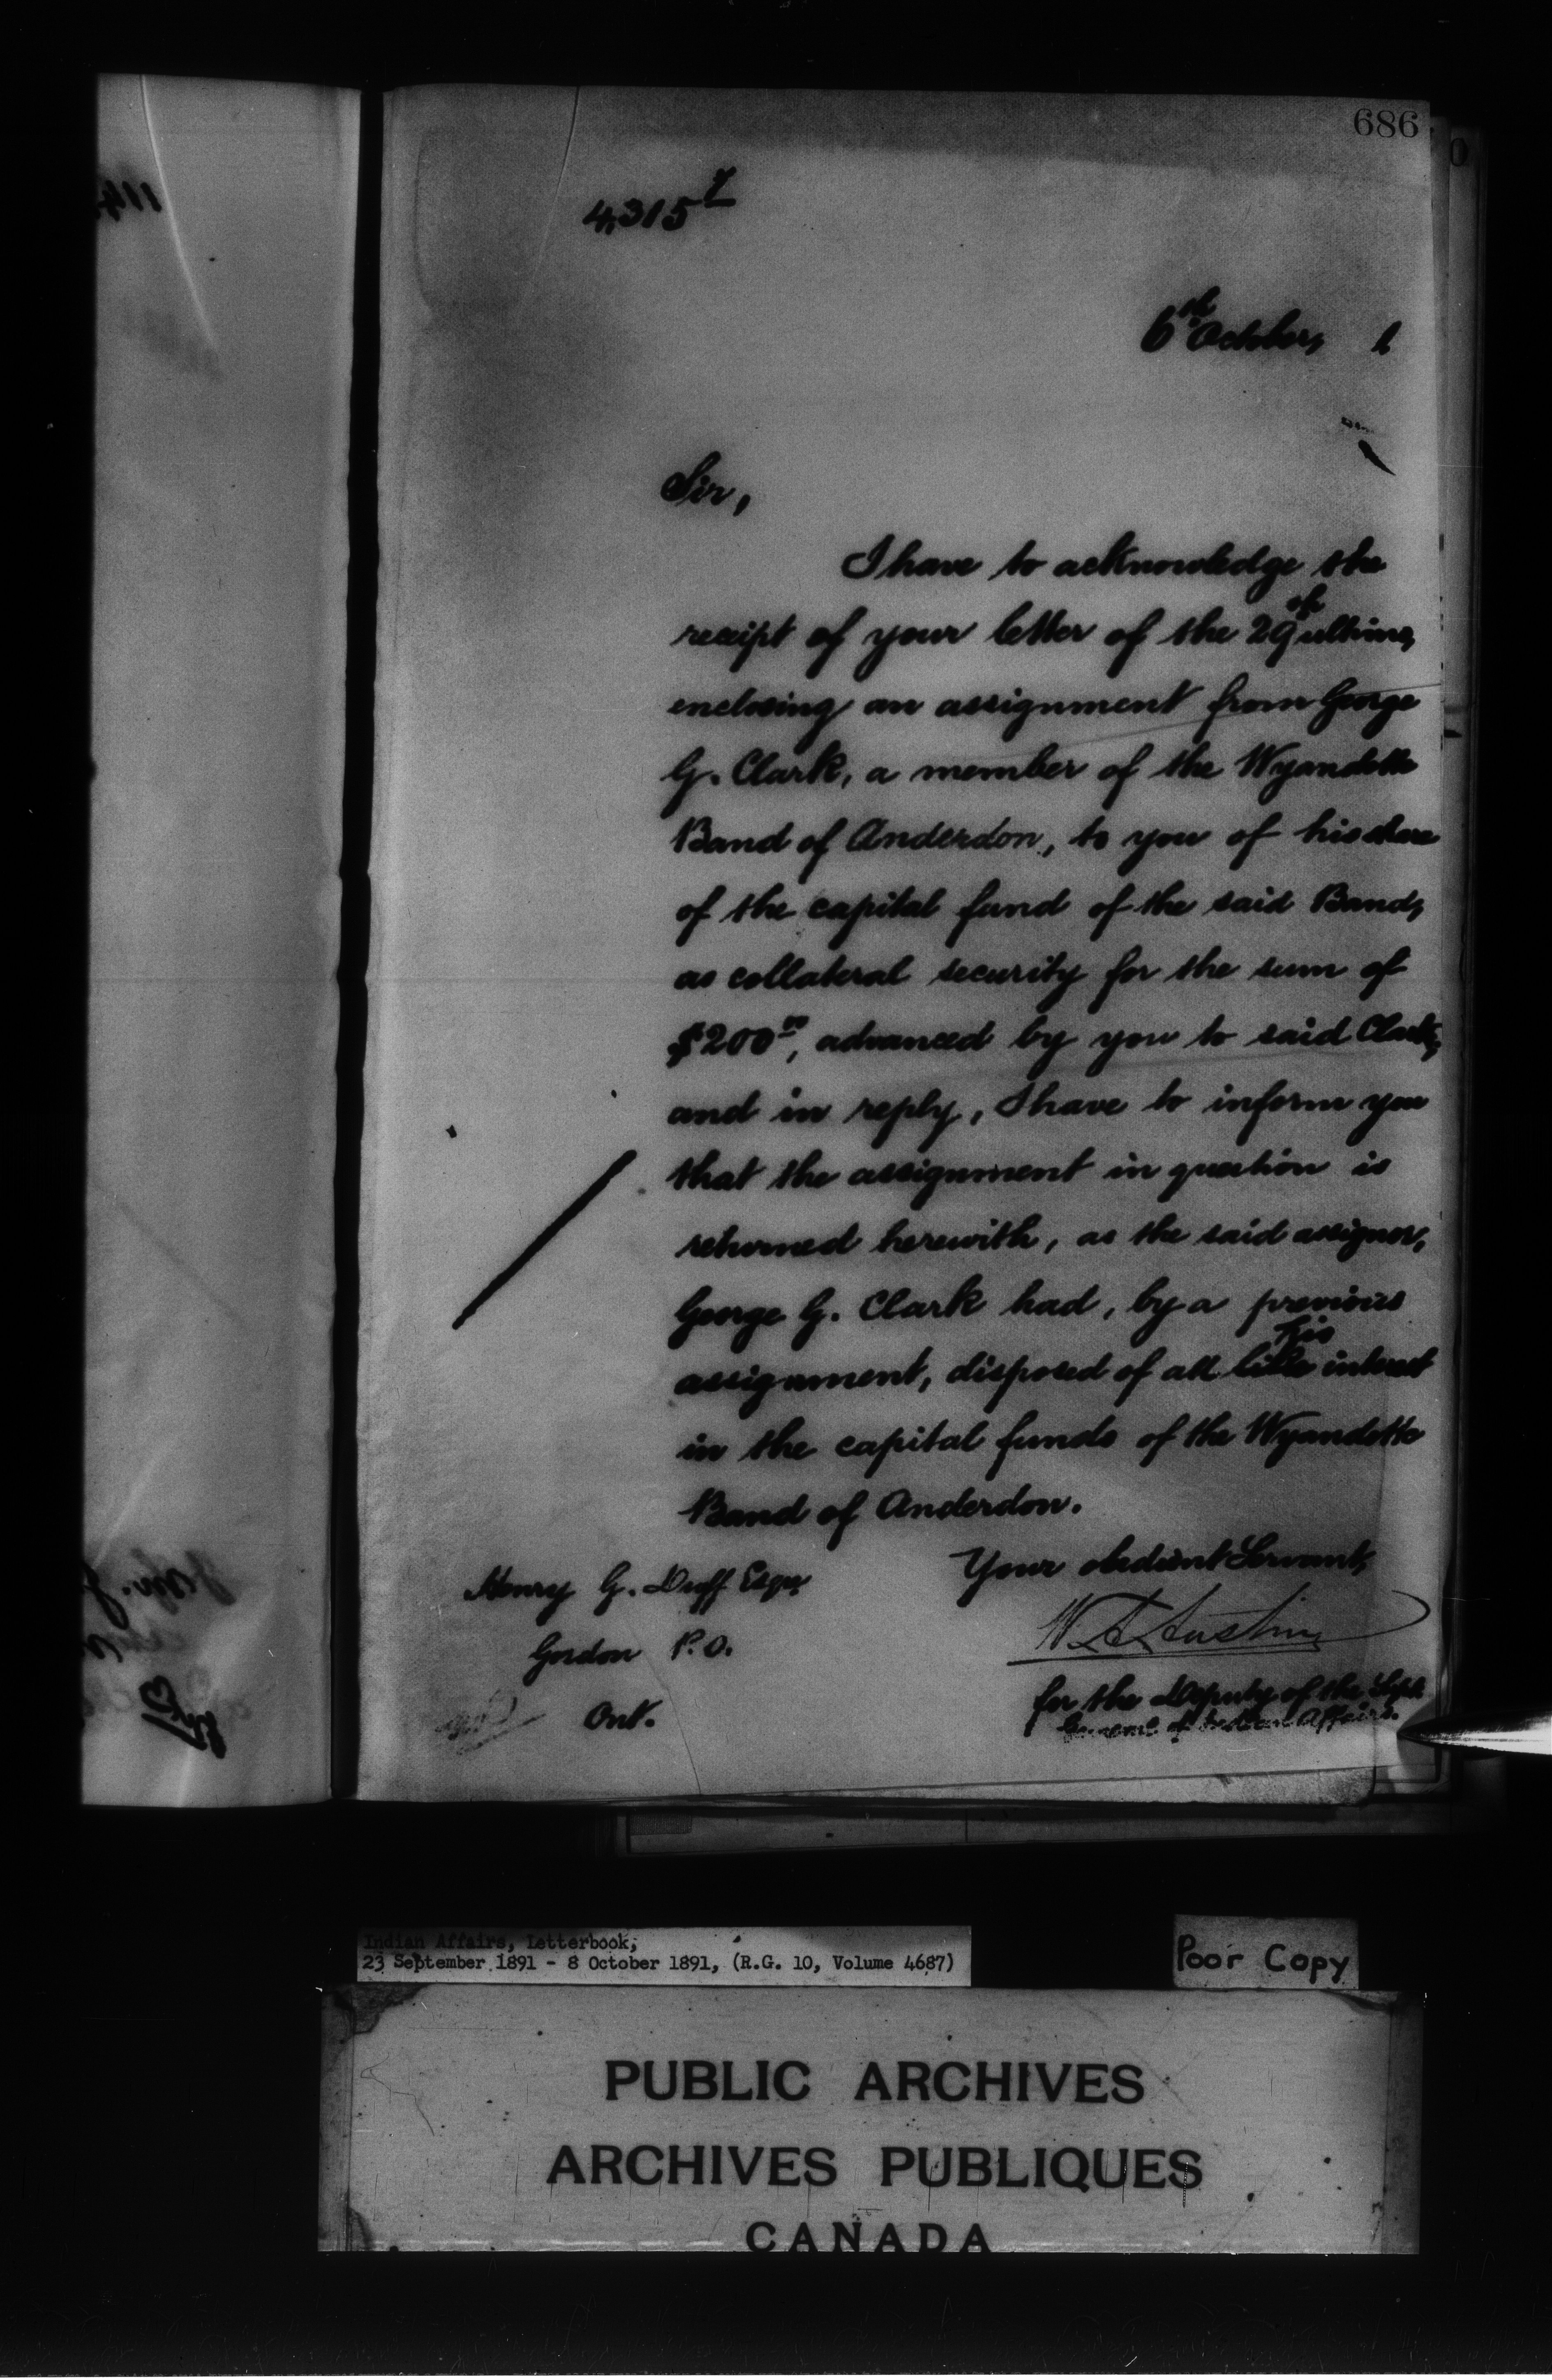 686
4,315 2/
6th October, 1
Sir,
I have to acknowledge the
receipt of your letter of the 29th ultimo,
enclosing an assignment from George
G. Clark, a member of the Wyandotte
Band of Anderdon, to you of his share
of the capital fund of the said Band,
as collateral security for the sum of
$200 00, advanced by you to said Clark,
and in reply, I have to inform you
that the assignment in question is
returned herewith, as the said assignor,
George G. Clark had, by a previous
his
assignment, disposed of all interest
in the capital funds of the Wyandotte
Band of Anderdon.
Your obedient Servant,
Henry G. Duff Esqre
W A Austin
Gordon P.O.
for the Deputy of the Supt.
Ont.
General of Indian Affairs.
Indian Affairs, Letterbook,
23 September 1891 - 8 October 1891, (R.G. 10, Volume 4687)
Poor Copy
PUBLIC ARCHIVES
ARCHIVES PUBLIQUES
CANADA